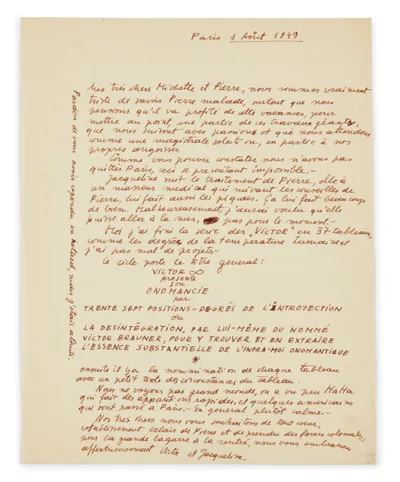 Paris 9 Août 1949
Mes très chers Michette et Pierre, nous sommes vraiment
triste de savoir Pierre malade, surtout que nous
pensions qu'il va profité de cette vacances, pour
mettre au point, une partie de ces travaux géants,
que nous suivons avec passions et que nous attendons
comme une magistrale solution, en partie à nos
propres angoises.
Comme vous pouvez constater nous n'avons pas
quitter Paris, ceci se présentant impossible.-
Jacqueline suit le traitement de Pierre, elle a
un masseur medical qui suivant les conseilles de
Pierre, lui fait aussi les piqures. Ça lui fait beaucoup
de bien. Malheureusement, j'aurais voulu qu'elle
puisse aller à la mer, pas pour le moment.-
Moi j'ai fini la serie des "VICTOR" en 37 tableaux,
comme les degrés de la temperature humaine et
j'ai pas mal de projets.-
le cicle porte le titre general:
VICTOR ∞
presente
son
ONOMANCIE
par
TRENTE SEPT POSITIONS-DEGRÉS DE L'INTROJECTION
ou
LA DESINTÉGRATION, PAR LUI-MÊME DU NOMMÉ
VICTOR BRAUNER, POUR Y TROUVER ET EN EXTRAIRE
L'ESSENCE SUBSTANTIELLE DE L'INFRA-MOI ONOMANTIQUE
*
ensuite il y a la nommination de chaque tableau
avec un petit texte des circonstances du tableau.
Nous ne voyons pas grand monde, on a vu peu Matta
qui fait des apparitions rapides, et quelques americains
qui sont passé à Paris.- En general plutôt calme.-
Nos très chers nous vous souhaitons de tout cœur,
rétablissement de Pierre et de prendre des forces colossales,
pour la grande bagarre à la rentré, nous vous embrassons
affectueusement Victor et Jacqueline.
Pardon de vous avoir repondu en retard, nous étions